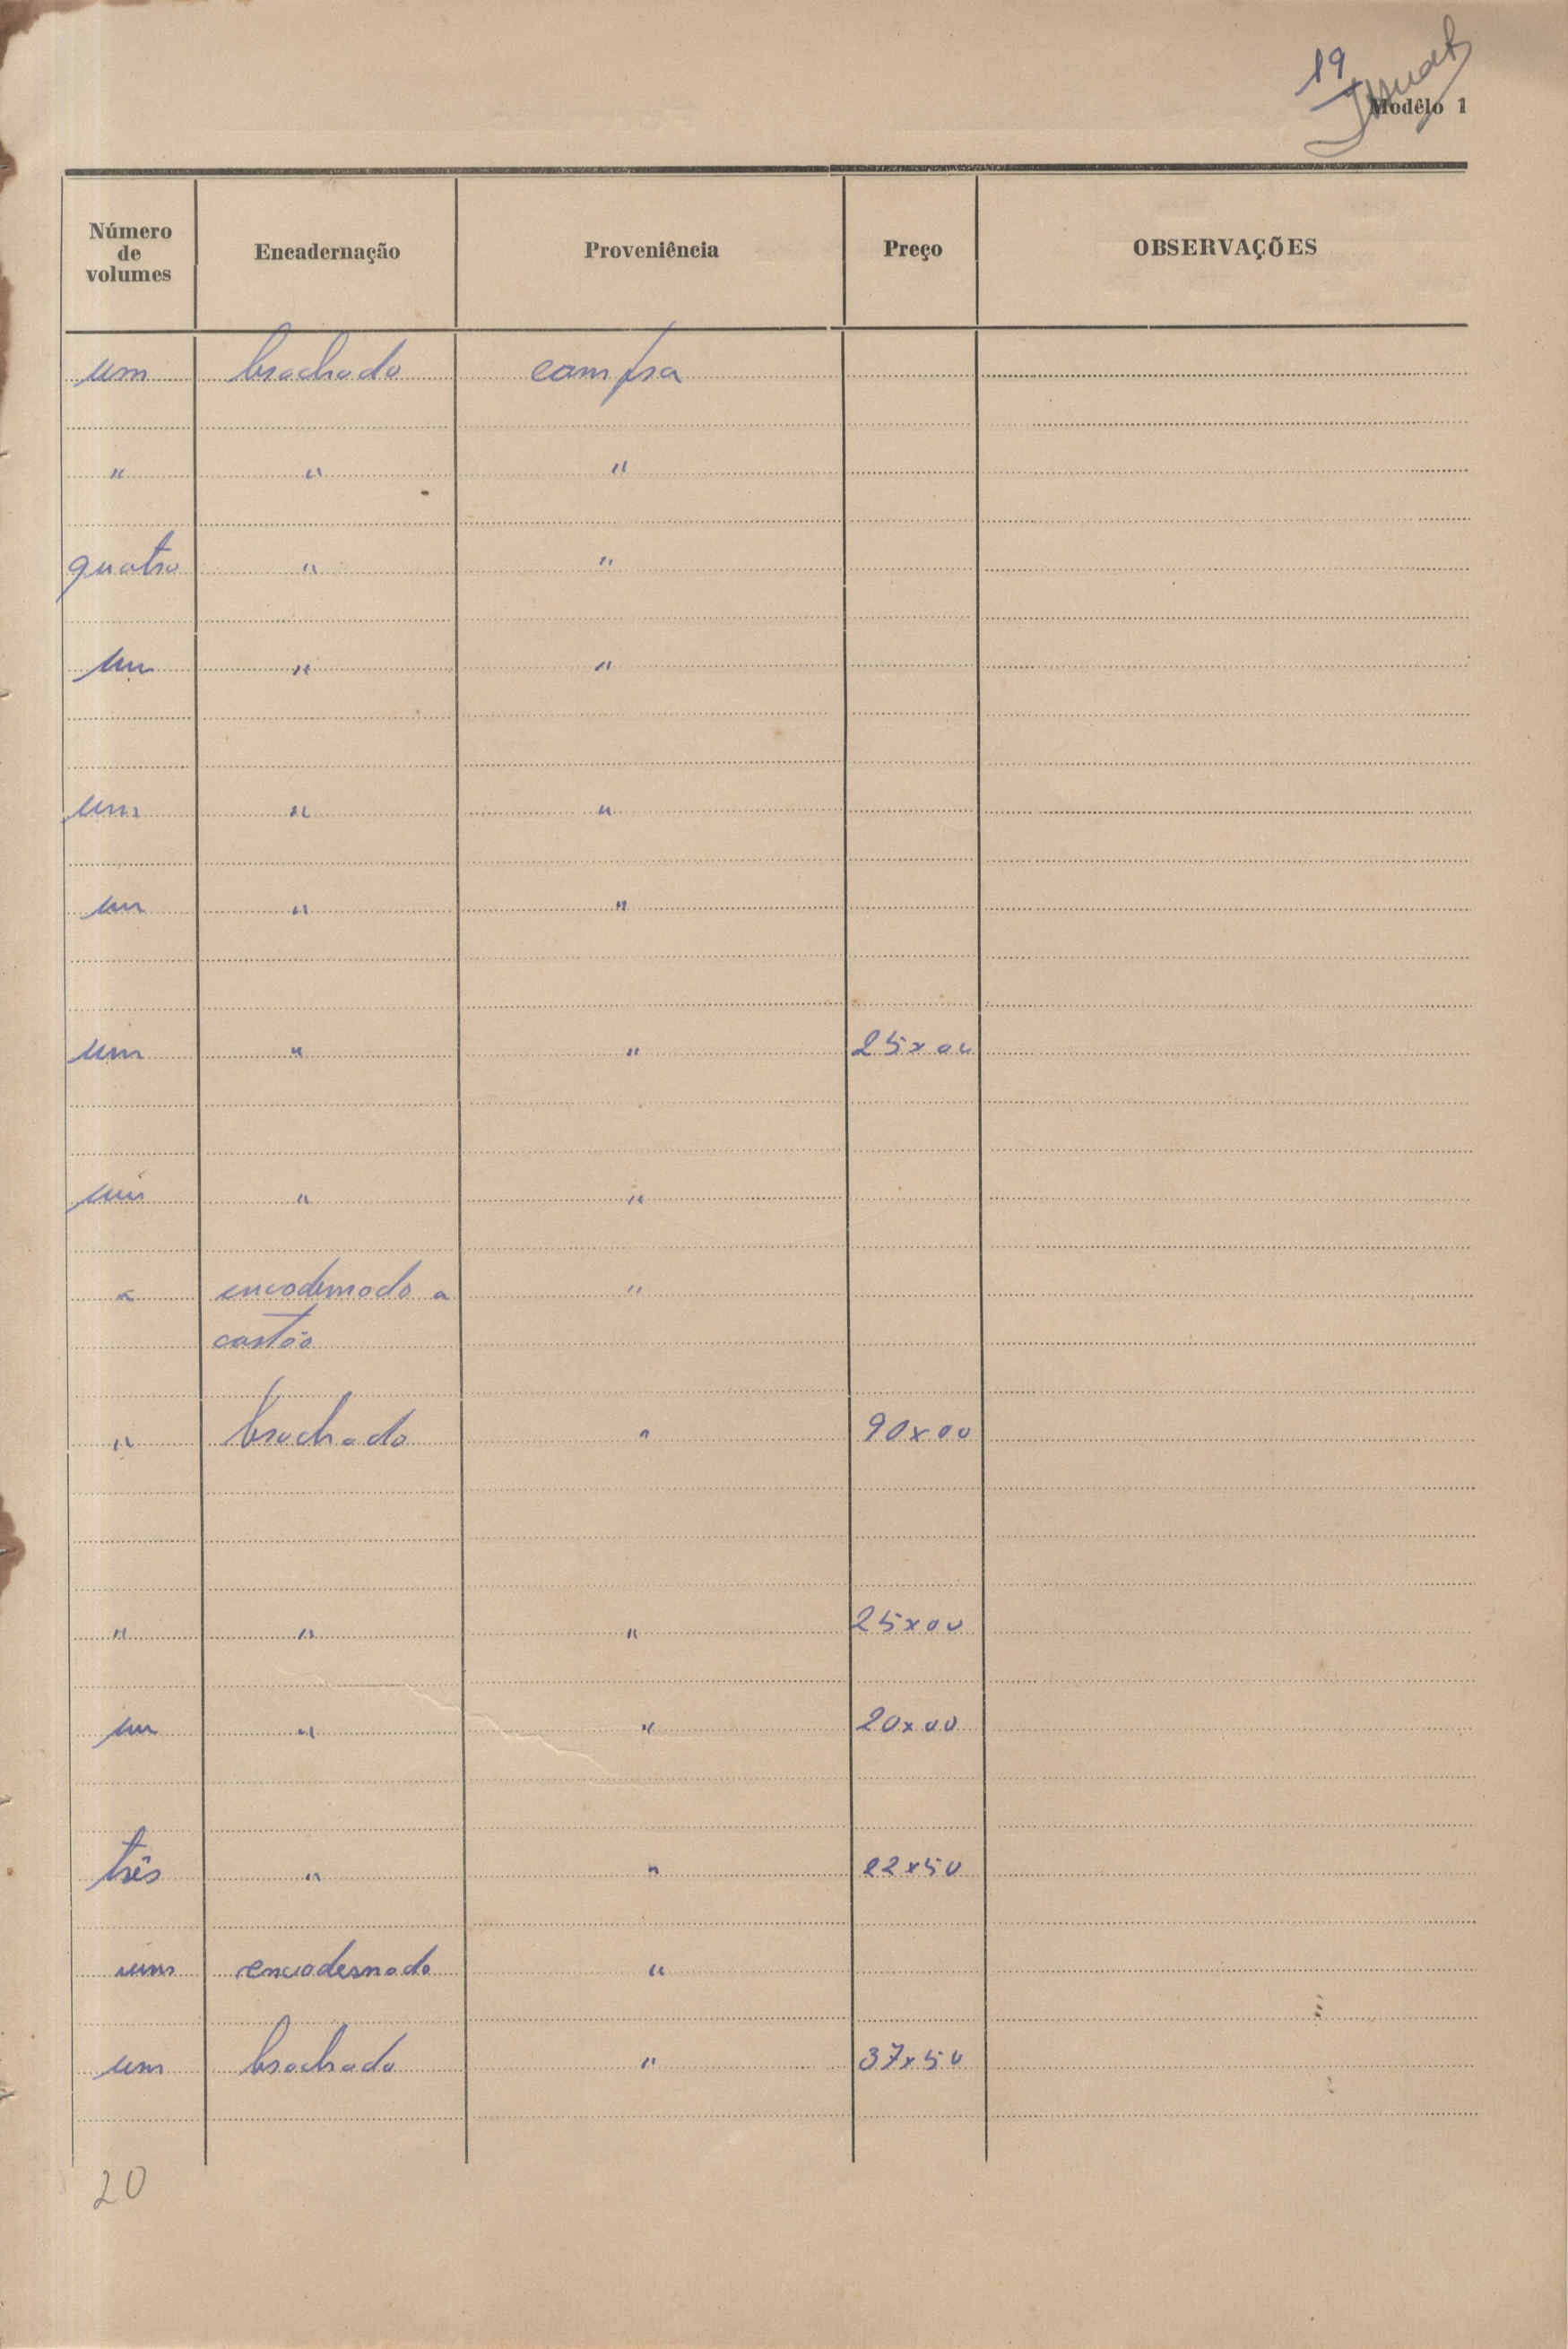 19
Modêlo 1
Número de volumes Encadernação Proveniência Preço OBSERVAÇÕES
um brochado compra
" " "
quatro " "
um " "
um " "
um " "
um " " 25x00
um " "
" encadernado a "
cartão
" brochado " 90x00
" " " 25x00
um " " 20x00
três " " 22x50
um encadernado "
um brochado " 37x50
20